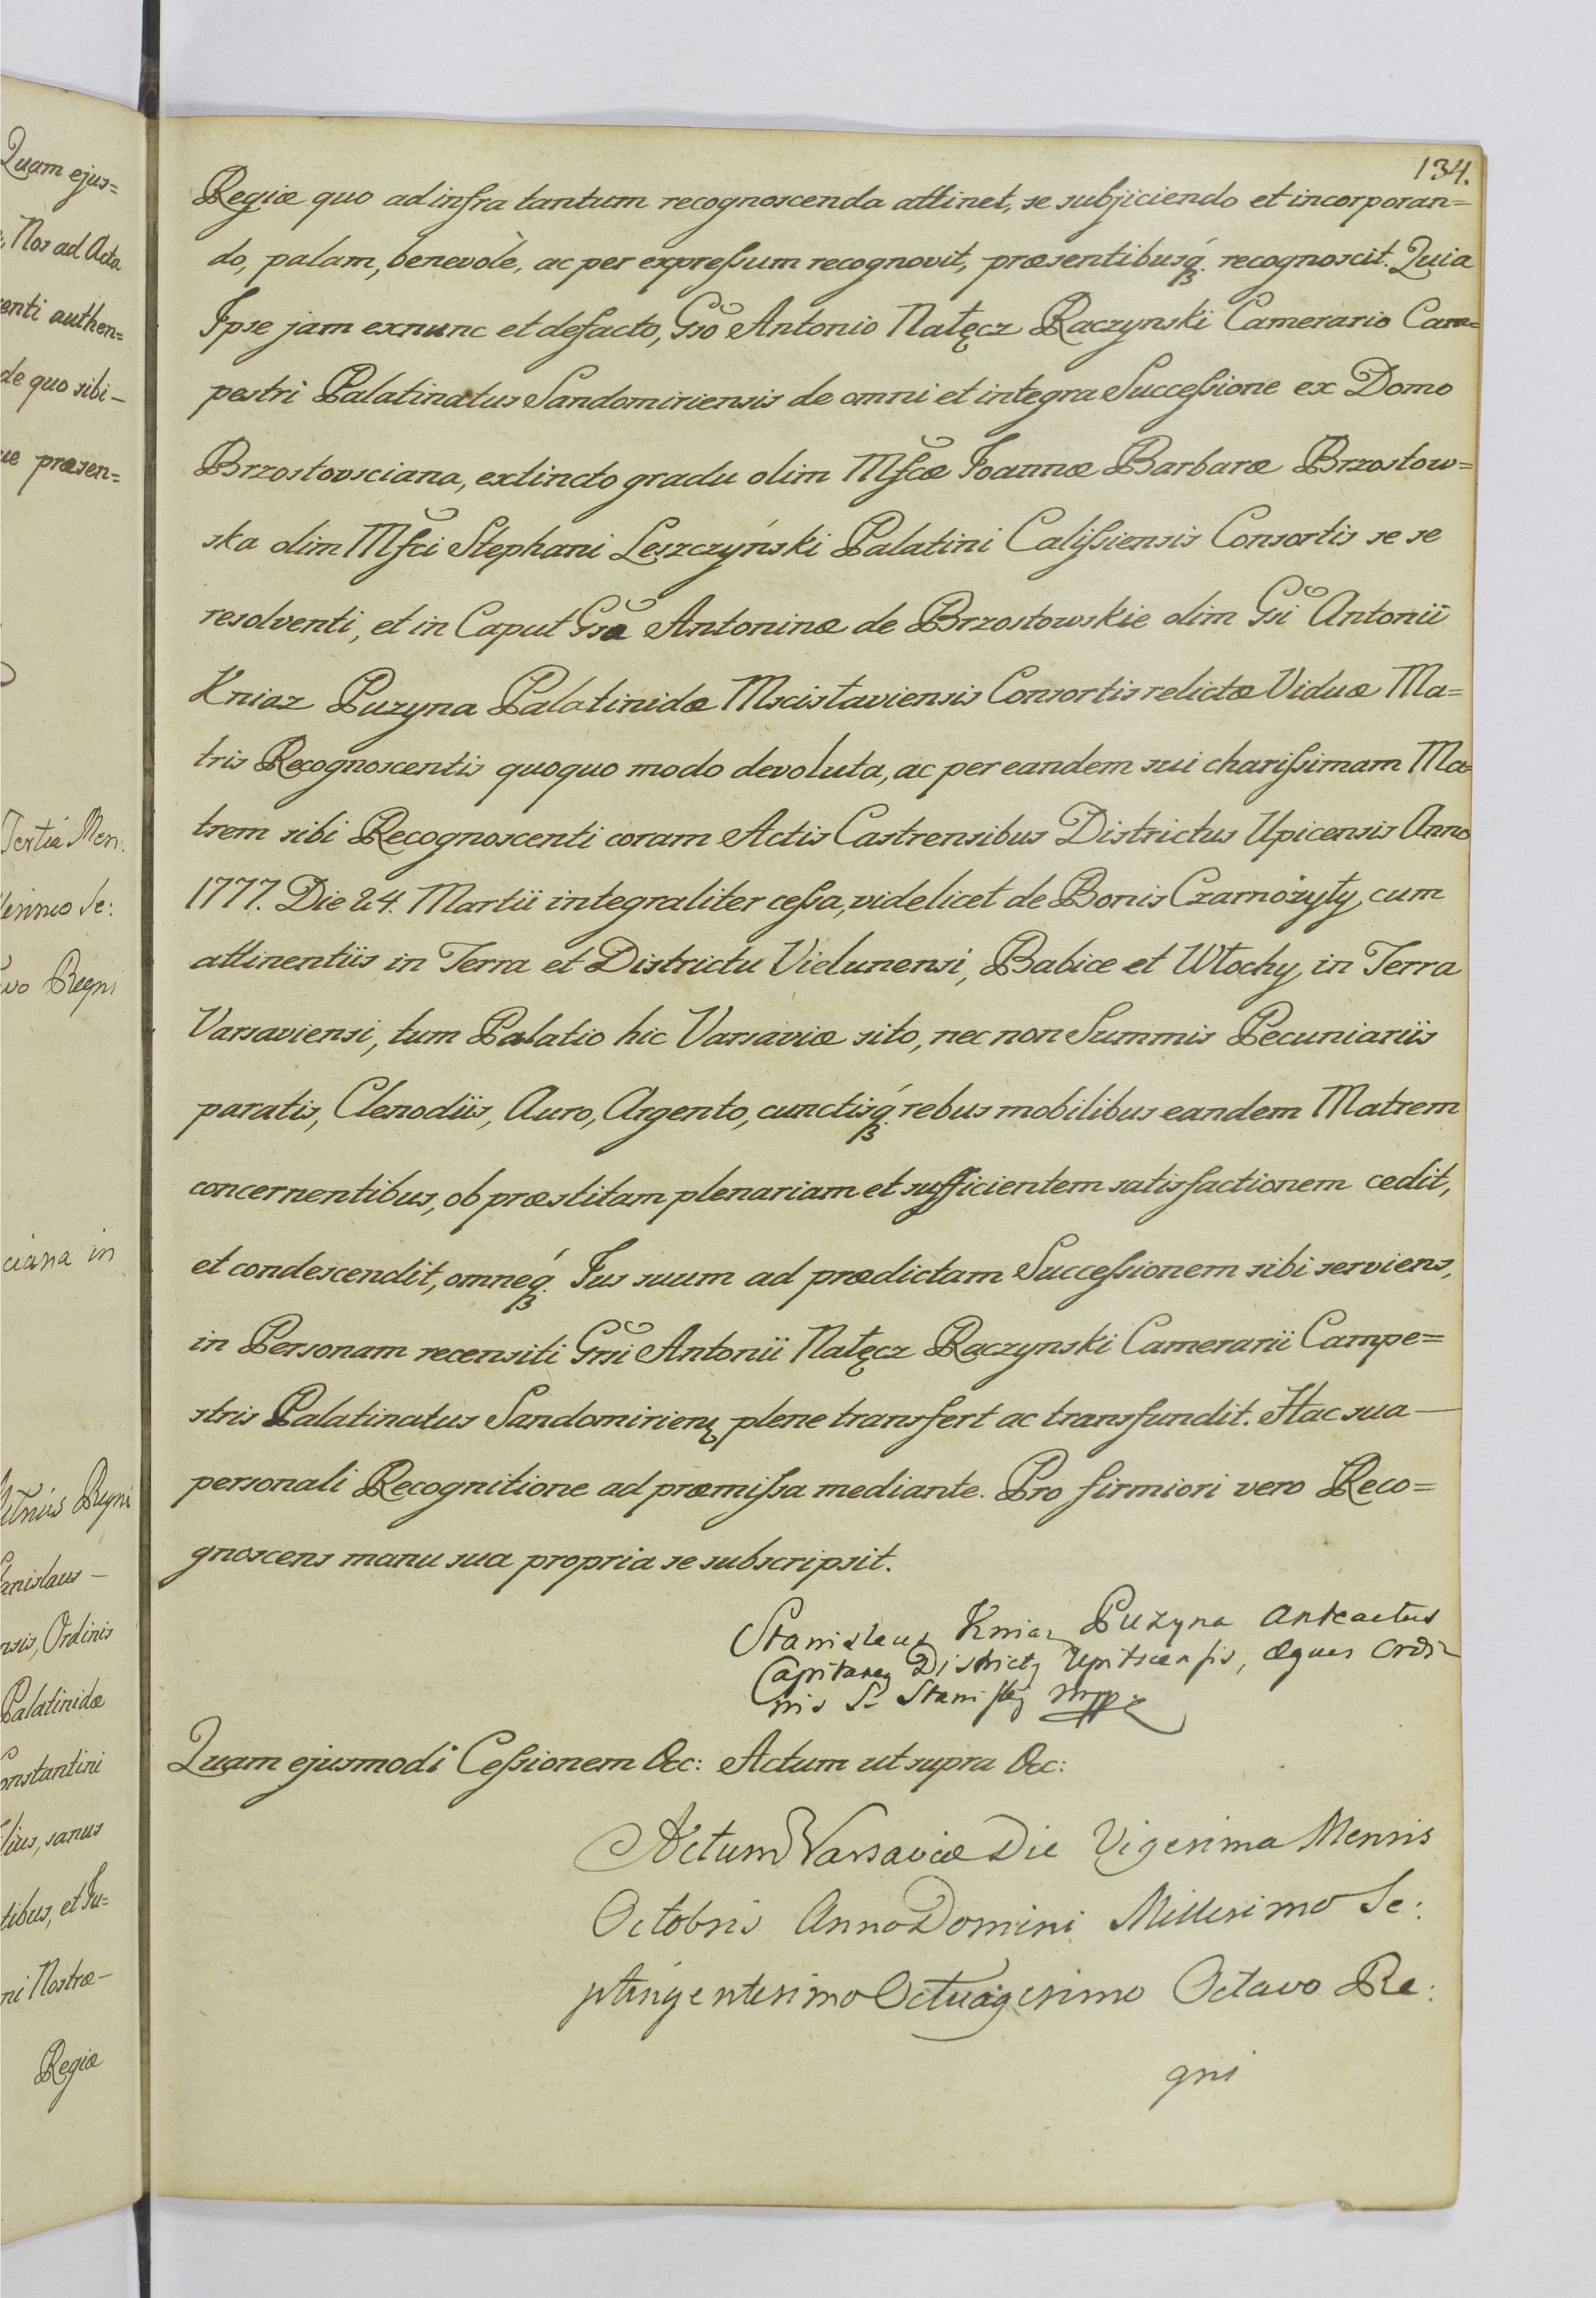 Quam ejus=
Nos ad Acta
enti authen=
de quo sibi –
ue præsen=
Tertiâ Men:
lesimo Se:
vo Regni
ciana in
Regni
anislaus –
nsis, Ordinis
Palatinidæ
onstantini
lius, sanus
tibus, et Ju=
ni Nostræ –
Regiæ
134.
Regiæ quo ad infra tantum recognoscenda attinet, se subjiciendo et incorporan=
do, palam, benevolè, ac per expreſsum recognovit, præsentibusq́ꝫ recognoscit. Quia
Ipse jam exnunc et defacto, Gso Antonio Nałęcz Raczynski Camerario Cam=
pestri Palatinatus Sandomiriensis de omni et integra Succeſsione ex Domo
Brzostovsciana, extincto gradu olim Mfcæ Joannæ Barbaræ Brzostow=
ska olim Mfci Stephani Leszczyński Palatini Caliſsiensis Consortis se se
resolventi, et in Caput Gsæ Antoninæ de Brzostowskie olim Gsi Antonii
Kniaz Puzyna Palatinidæ Mscisłaviensis Consortis relictæ Viduæ Ma=
tris Recognoscentis quoquo modo devoluta, ac per eandem sui chariſsimam Ma=
trem sibi Recognoscenti coram Actis Castrensibus Districtus Upicensis Anno
1777. Die 24. Martii integraliter ceſsa, videlicet de Bonis Czarnożyły cum
attinentiis in Terra et Districtu Vielunensi, Babice et Włochy in Terra
Varsaviensi, tum Palatio hic Varsaviæ sito, nec non Summis Pecuniariis
paratis, Clenodiis, Auro, Argento, cunctisq́ꝫ rebus mobilibus eandem Matrem
concernentibus, ob præstitam plenariam et sufficientem satisfactionem cedit,
et condescendit, omneq́ꝫ Jus suum ad prædictam Succeſsionem sibi serviens,
in Personam recensiti Gsi Antonii Nałęcz Raczynski Camerarii Campe=
stris Palatinatus Sandomirienꝫ plene transfert ac transfundit. Hac sua –
personali Recognitione ad præmiſsa mediante. Pro firmiori vero Reco=
gnoscens manu sua propria se subscripsit.
Stanislaus Kniaz Puzyna Anteactus
Capitaneꝫ Districtꝫ Upitscensis, Eques Ordi-
nis S. Stanislai mpp
Quam ejusmodi Ceſsionem &c: Actum ut supra &c:
Actum Varsaviæ Die Vigesima Mensis
Octobris Anno Domini Millesimo Se:
ptingentesimo Octuagesimo Octavo Re:
gni